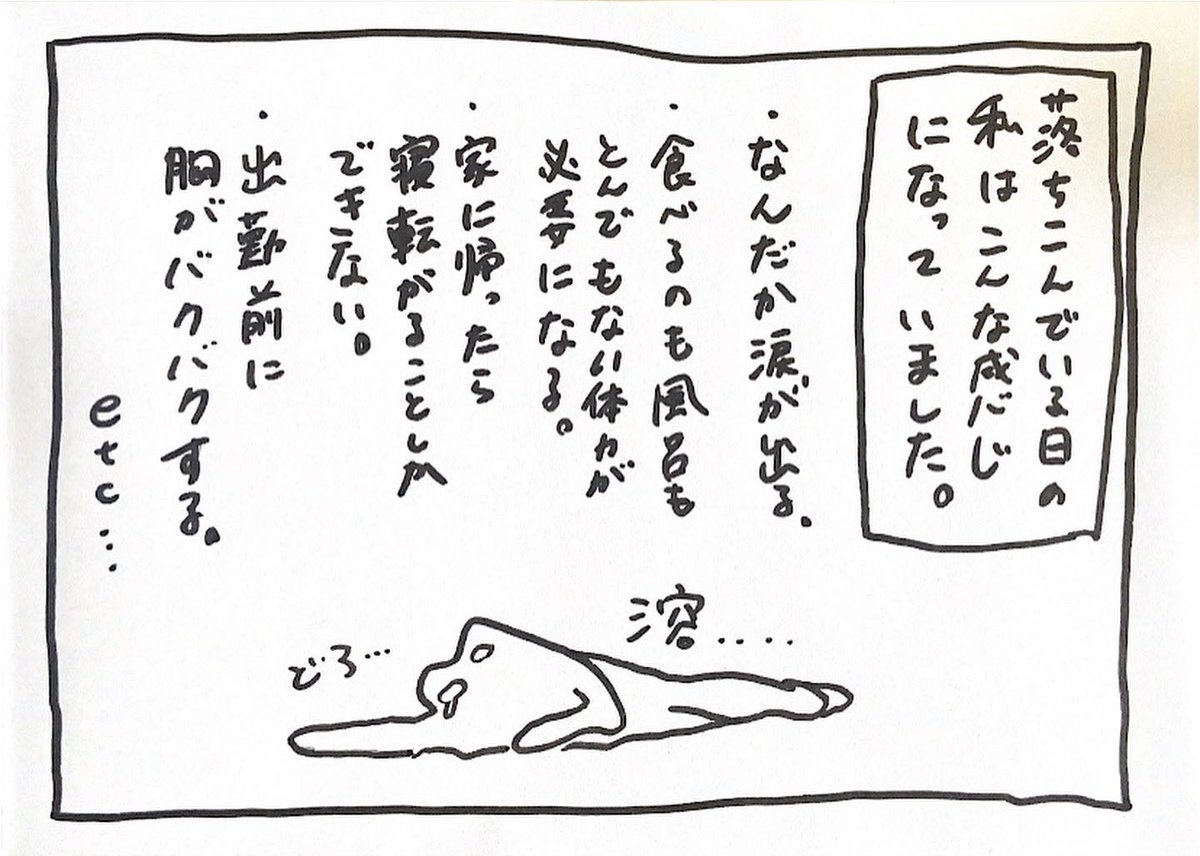 落ちこんでいる日の
私はこんな感じ
になっていました。
・なんだか涙が出る。
・食べるのも風呂も
とんでもない体力が
必要になる。
・家に帰ったら
寝転がることしか
できない。
・出勤前に
胸がバクバクする。
etc...
溶....
どろ...